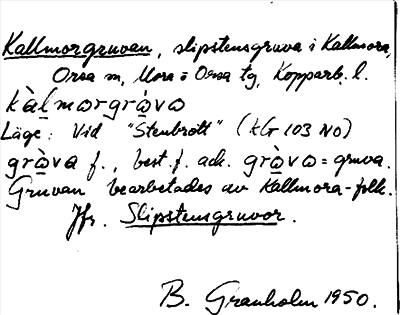 Kallmorgruvan, slipstensgruva i Kallmora,
Orsa sn, Mora o Orsa tg, Kopparb. l.
kàl̲morgrò̲vo
Läge: Vid "Stenbrott" (kbl 103 NO)
grò̲va f., best. f. ack. grò̲vo = gruva.
Gruvan bearbetades av Kallmora-folk.
Jfr. Slipstensgruvor.
B. Granholm 1950.